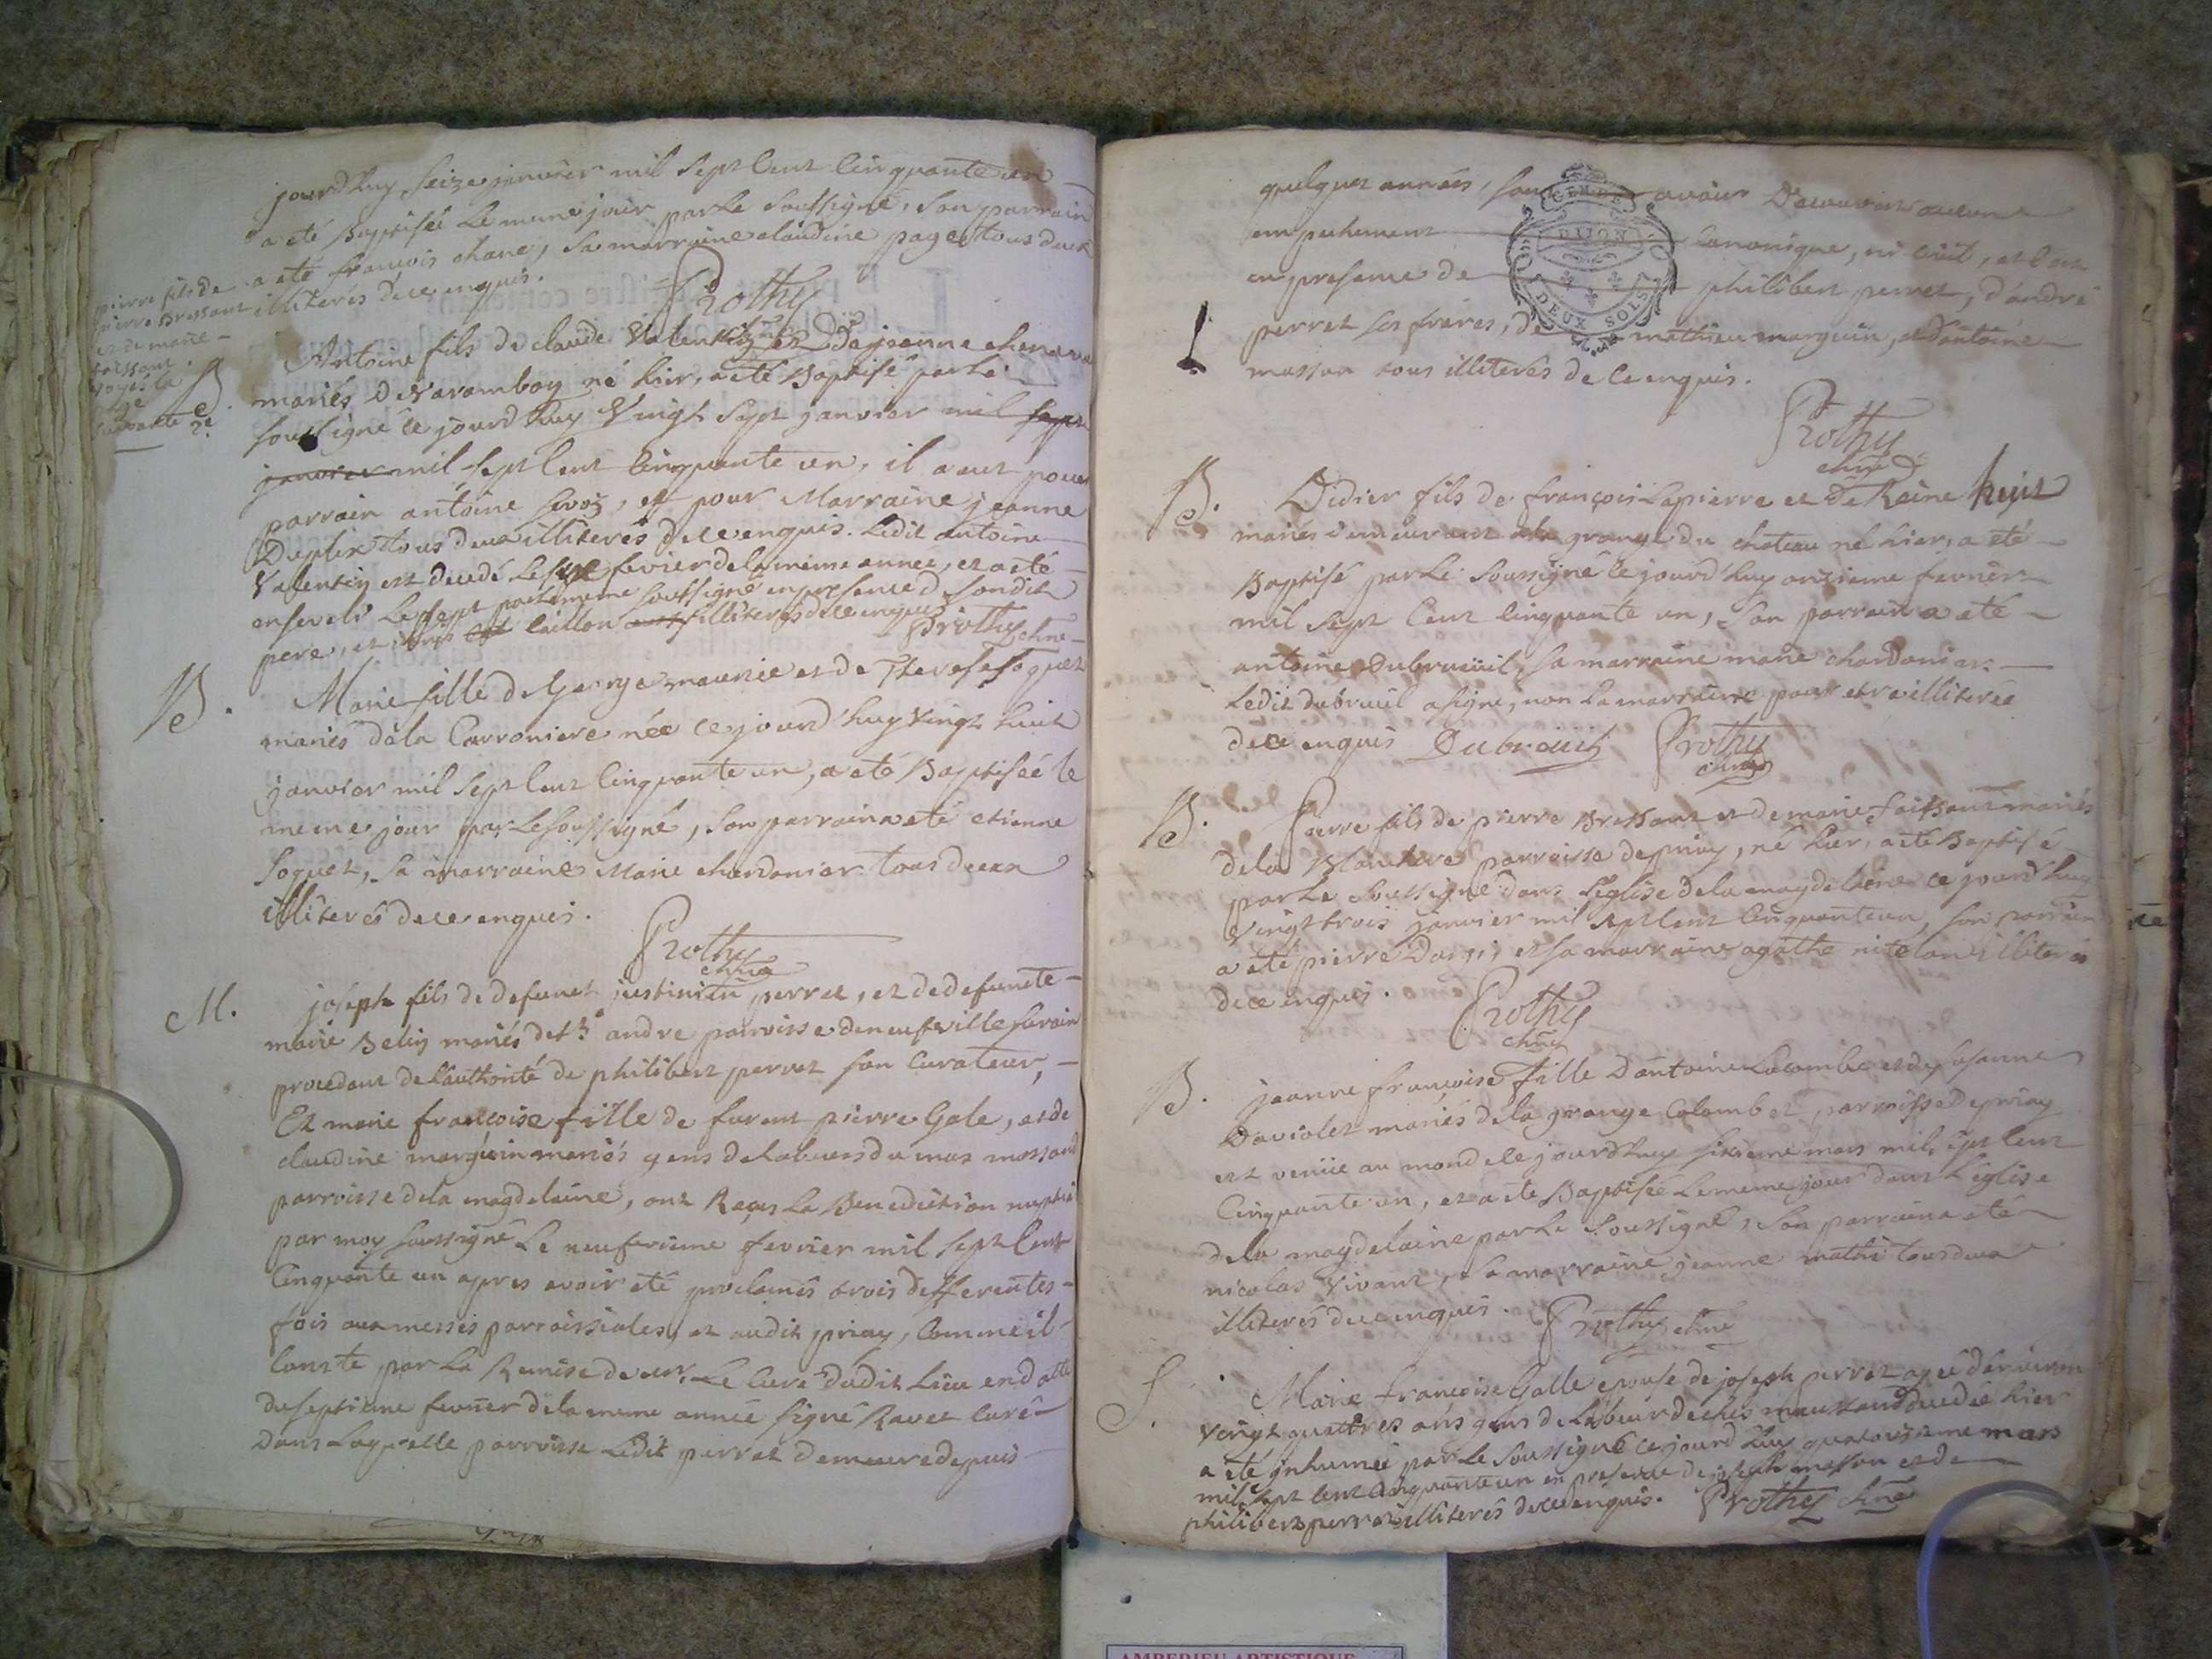 jourd'huy seize janvier mil sept cent cinquante un
a été Baptisée le meme jour par le soussigné, son parrain
a été francois chane, sa marraine claudine page tous deux
illiterés de ce enquis.
Prothy
pierre fils de
pierre Bressant
et de marie
foissant
voyes la
page
suivante
B.
Antoine fils de claude Valentin et de jeanne chenava
mariés de varambon né hier, a été Baptisé par le
soussigné ce jourd'huy vingt sept janvier mil sept
janvier mil sept cent cinquante un, il a eut pour
parrain antoine, et pour Marraine jeanne
Duplex tous deux illiterés de ce enquis. Ledit antoine
Valentin est decedé le six fevrier de la meme année, et a été
enseveli le sept par le meme soussigné en presence de sondit
pere, et caillon illiterés de ce enquis
Prothy chne
B.
Marie fille de George maunie et de Therese soquet
mariés de la Carroniere née ce jourd'huy vingt huit
janvier mil sept cent cinquante un, a été Baptisée le
meme jour par le soussigné, son parrain a été etienne
soquet, sa marraine Marie chardonier tous deux
illiterés de ce enquis.
Prothy
chne
M.
joseph fils de defunct justinien perret, et de defuncte
marie Belin mariés de st andre parroisse de neufville surain
procedant de l'authorité de philibert perret son curateur,
Et marie francoise fille de furent pierre Gale, et de
claudine marguin mariés gens de labeurs du mas mossand
parroisse de la magdelaine, ont Reçus la Benediction nuptial
par moy soussigné le neufvieme fevrier mil sept cent
cinquante un apres avoir été proclamés trois differentes
fois aux messes parroissiales, et audit priay, comme il
conste par la Remise de mr. Le curé dudit Lieu en datte
du septieme fevrier de la meme année signé Ravet curé
dans laquelle parroisse Ledit perret demeure depuis
quelques années, sans avoir decouvert aucun
empechement canonique, ni civil, et c'est
en presence de philibert perret, d'andré
perret ses freres, de mathieu marguin, et d'antoine
masson tous illiterés de ce enquis.
GEN DE
DIJON
DEUX SOLS
Prothy
chne
B.
Didier fils de françois Lapierre et de Reine huit
mariés demeurant a la grange du chateau né hier, a été
Baptisé par le soussigné ce jourd'huy onzieme fevrier
mil sept cent cinquante un, son parrain a été
antoine Dubreuil, sa marraine marie chardonier
Ledit dubreuil a signé, non la marraine pour etre illiterée
de ce enquis Dubreuil Prothy
chne
B.
Pierre fils de pierre Bressant et de marie foissant mariés
de la Blanchere parroisse de priay, né hier, a été Baptisé
par le soussigné dans l'église de la magdelaine ce jourd'huy
vingt trois janvier mil sept cent cinquante un, son parrain
a été pierre, et sa marraine agathe illiterés
de ce enquis.
Prothy
chne
B.
jeanne françoise fille d'antoine Lacombe et de susanne
Daviolet mariés de la grange Colombet, parroisse de priay
est venüe au monde ce jourd'huy sixieme mars mil sept cent
cinquante un, et a été Baptisée le meme jour dans l'église
de la magdelaine par le soussigné, son parrain a été
nicolas Vivant, sa marraine jeanne mathi tous deux
illiterés de ce enquis. Prothy chne
S.
Marie francoise Galle epouse de joseph perret agée d'environ
vingt quattres ans gens de labeur de chez moussand decedée hier
a été inhumée par le soussigné ce jourd'huy quatorzieme mars
mil sept cent cinquante un en presence de joseph masson et de
philibert perret illiterés de ce enquis. Prothy chne
AMBERIEU ARTISTIQUE